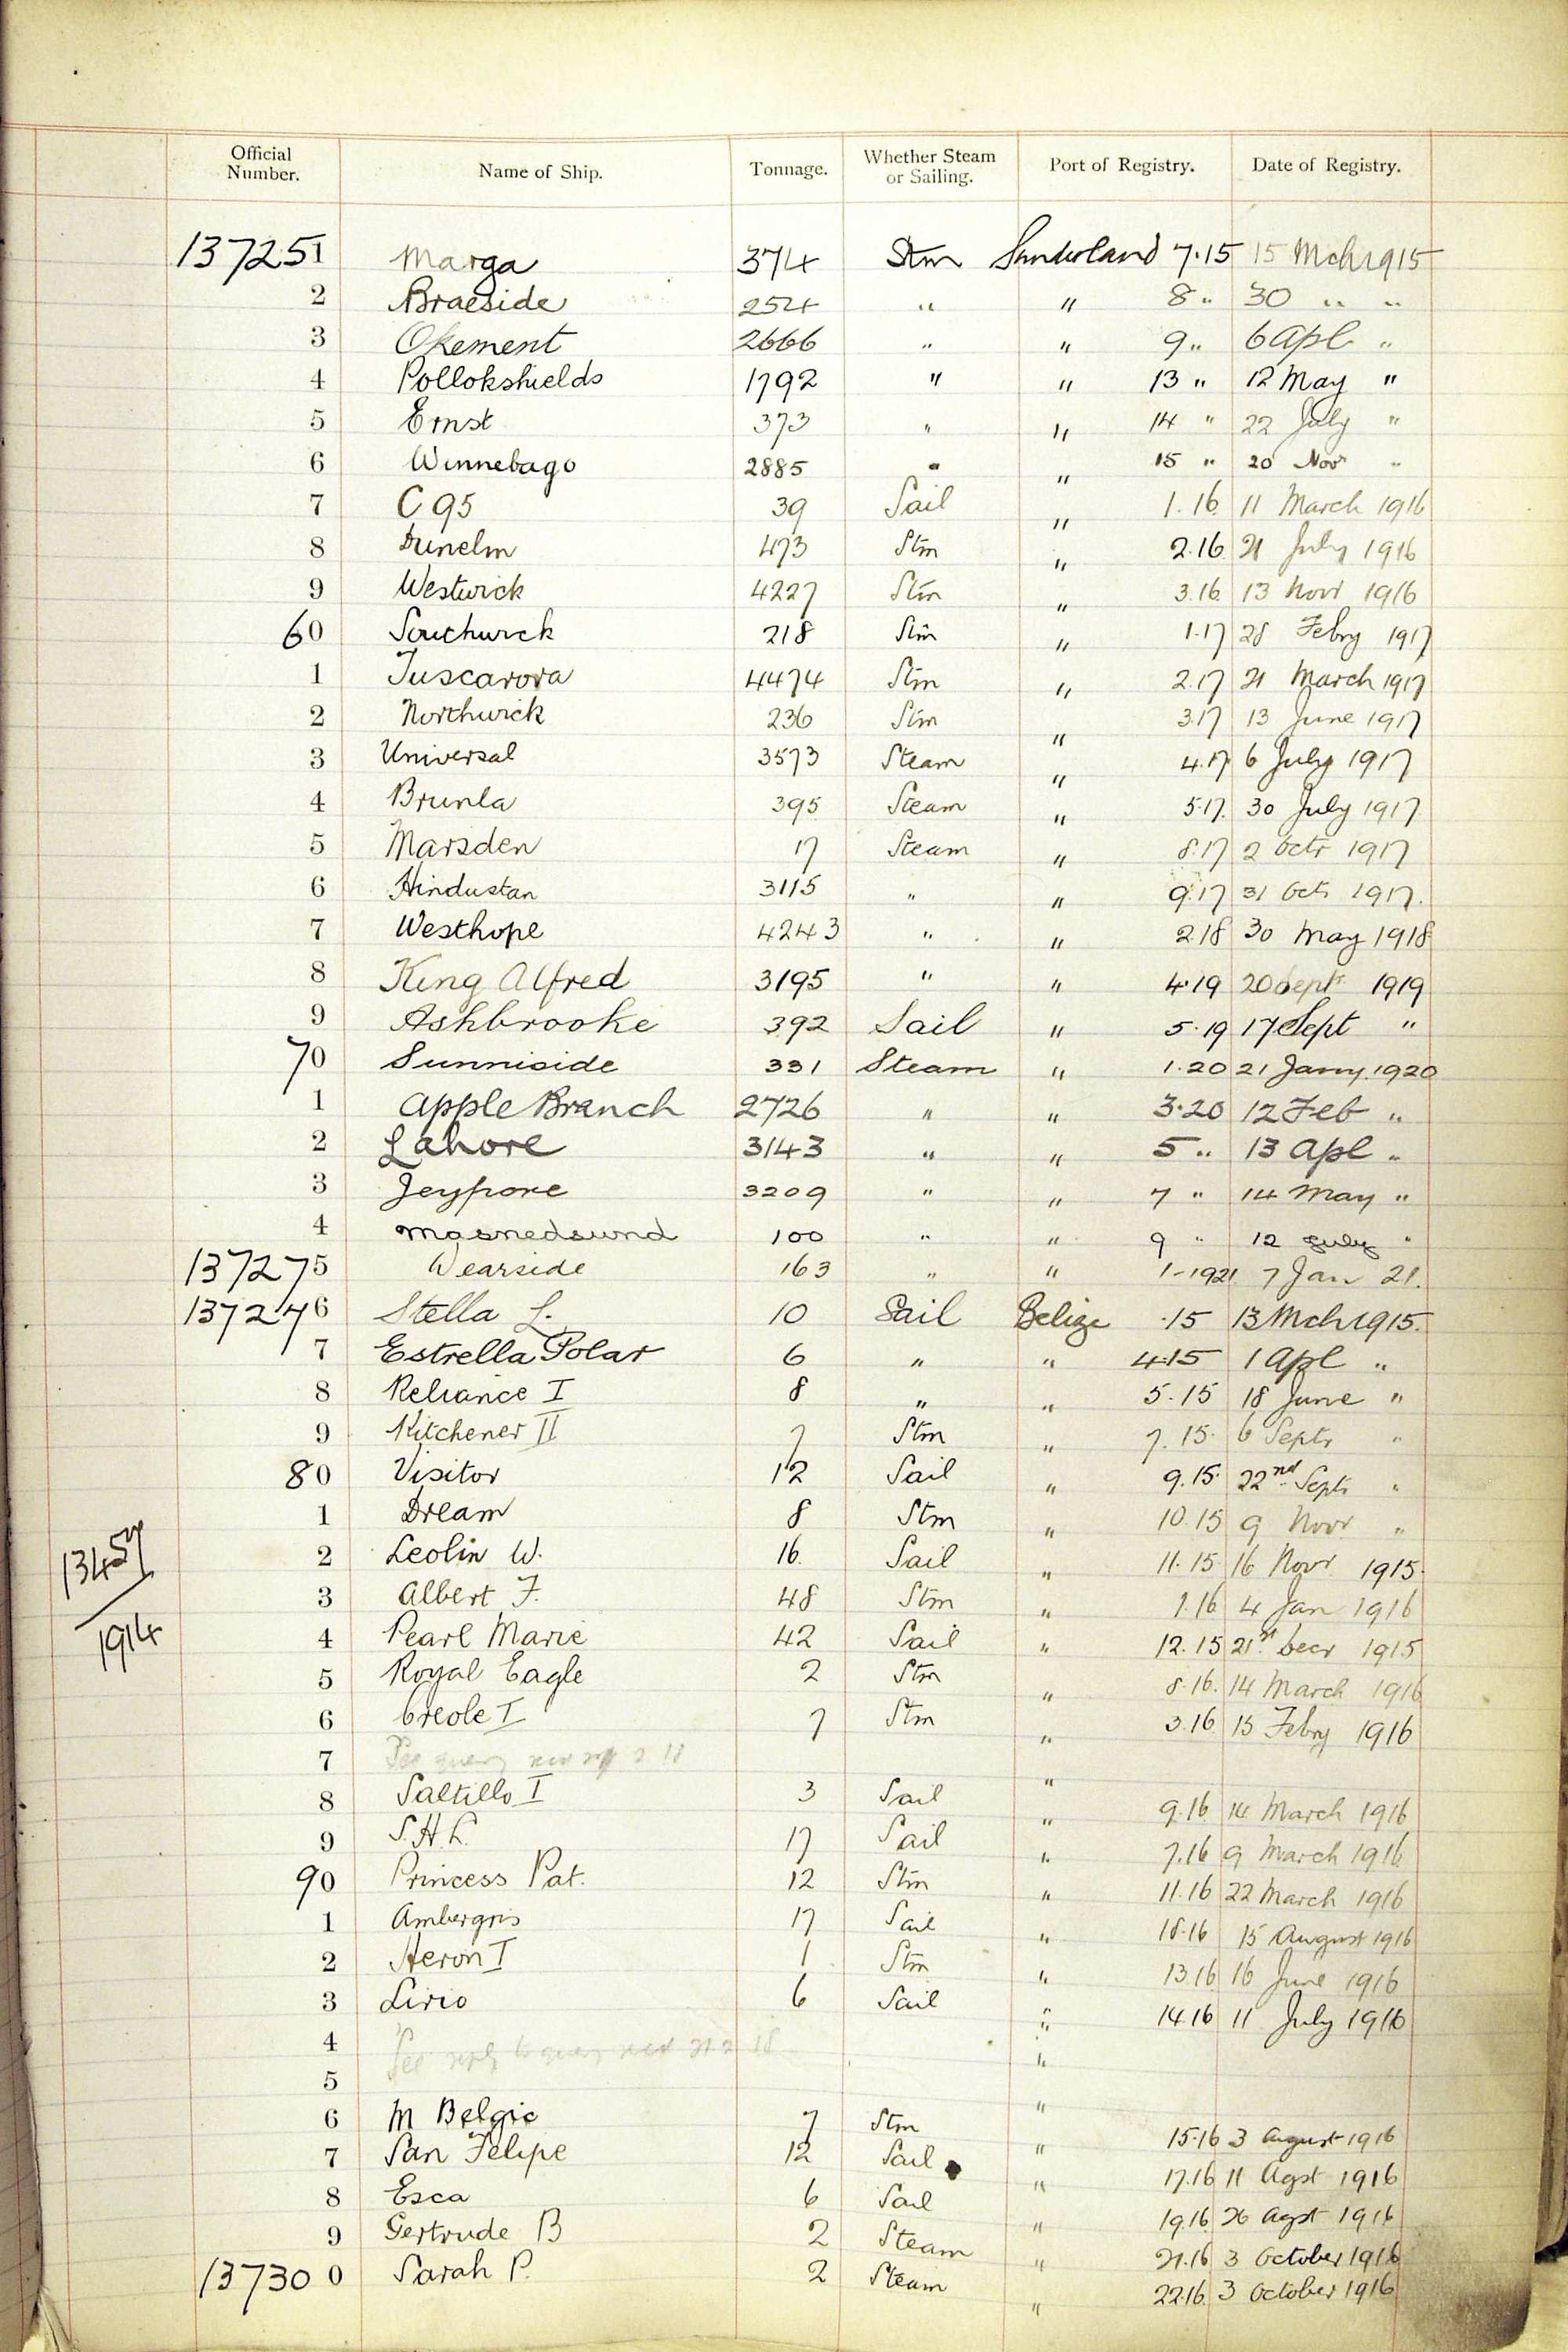 Official Number. Name of Ship. Tonnage. Whether Steam or Sailing. Port of Registry. Date of Registry.
137251 Marga 374 Stm Sunderland 7.15 15 Mch 1915
2 Braeside 254 " " 8 " 30 " "
3 Okement 2666 " " 9 " 6 Apl "
4 Pollokshields 1792 " " 13 " 12 May "
5 Ernst 373 " " 14 " 22 July "
6 Winnebago 2885 " " 15 " 20 Novr "
7 C 95 39 Sail " 1.16. 11 March 1916
8 Dunelm 473 Stm " 2.16. 21 July 1916
9 Westwick 4227 Stm " 3.16. 13 Novr 1916
60 Southwick 218 Stm " 1.17 28 Febry 1917
1 Tuscarora 4474 Stm " 2.17 21 March 1917
2 Northwick 236 Stm " 3.17 13 June 1917
3 Universal 3573 Steam " 4.17 6 July 1917
4 Brunla 395 Steam " 5.17. 30 July 1917.
5 Marsden 17 Steam " 8.17 2 Octr 1917
6 Hindustan 3115 " " 9.17 31 Oct. 1917.
7 Westhope 4243 " " 2.18 30 May 1918
8 King Alfred 3195 " " 4.19 20 Sept 1919
9 Ashbrooke 392 Sail " 5.19 17 Sept "
70 Sunniside 331 Steam " 1.20 21 Jany. 1920
1 Apple Branch 2726 " " 3.20 12 Feb "
2 Lahore 3143 " " 5 " 13 Apl "
3 Jeypore 3209 " " 7 " 14 May "
4 Masnedsund 100 " " 9 " 12 July "
137275 Wearside 163 " " 1-1921 7 Jan 21.
137276 Stella L. 10 Sail Belize .15 13 Mch 1915.
7 Estrella Polar 6 " " 4.15 1 Apl "
8 Reliance I 8 " " 5.15 18 June "
9 Kitchener II 7 Stm " 7.15. 6 Septr "
80 Visitor 12 Sail " 9.15. 22nd Septr "
1 Dream 8 Stm " 10.15 9 Novr "
13457/1914
2 Leolin W. 16. Sail " 11.15 16 Novr 1915.
3 Albert F. 48 Stm " 1.16 4 Jan 1916
4 Pearl Marie 42 Sail " 12.15 21st Decr 1915
5 Royal Eagle 2 Stm " 8.16. 14 March 1916
6 Creole I 7 Stm " 3.16. 15 Febry 1916
7 See query "
8 Saltillo I 3 Sail " 9.16. 14 March 1916
9 S.H.L. 17 Sail " 7.16 9 March 1916
90 Princess Pat. 12 Stm " 11.16 22 March 1916
1 Ambergris 17 Sail " 18.16 15 August 1916
2 Heron I 1 Stm " 13.16 16 June 1916
3 Lirio 6 Sail " 14.16 11 July 1916
4 See reply to query "
5 "
6 M Belgic 7 Stm " 15.16 3 August 1916
7 San Felipe 12 Sail " 17.16 11 Agst 1916
8 Esca 6 Sail " 19.16 26 Agst 1916
9 Gertrude B 2 Steam " 21.16 3 October 1916
137300 Sarah P. 2 Steam " 22.16. 3 October 1916